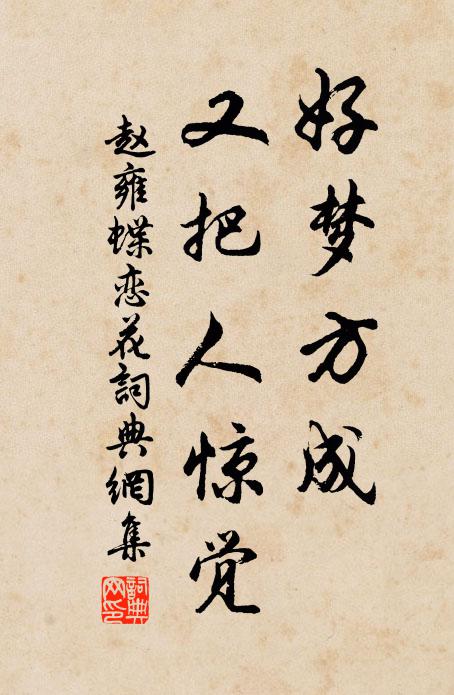 好梦方成
又把人惊觉
赵雍蝶恋花詞典網集
詞典网印